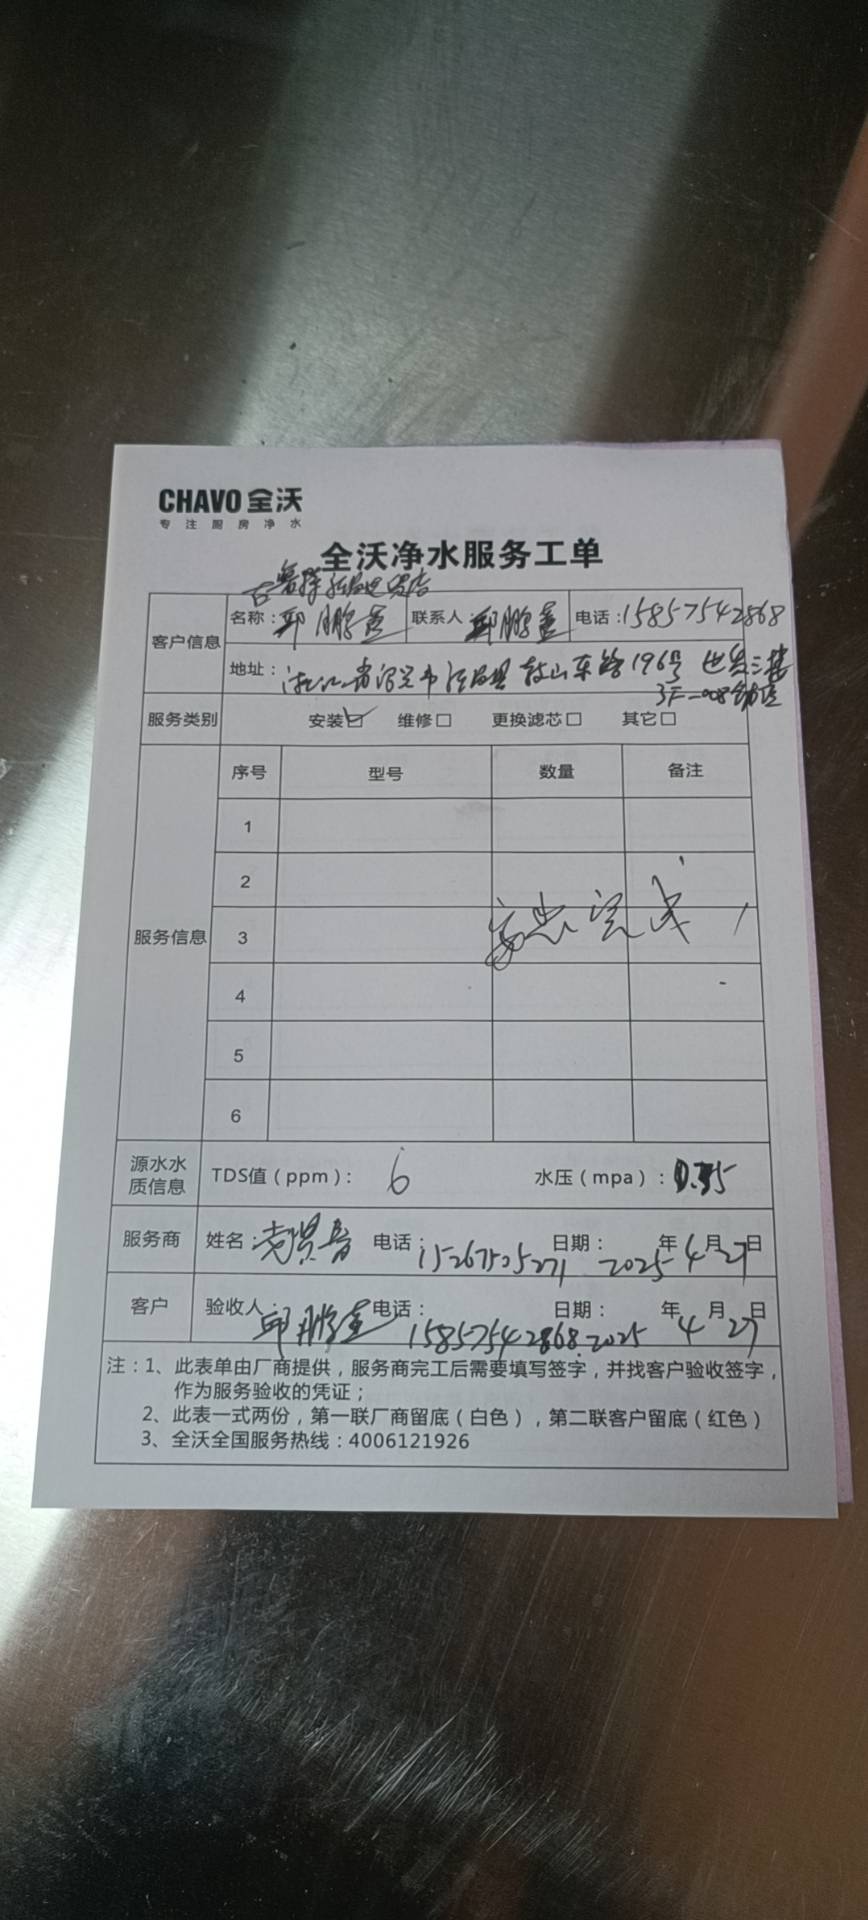 CHAVO 全沃
专注厨房净水
全沃净水服务工单
客户信息
名称：邱鹏 联系人：邱鹏 电话：15857542868
地址：浙江省绍兴市 鼓山东路196号 世贸三楼
3F-008
服务类别 安装☑ 维修□ 更换滤芯□ 其它□
服务信息
序号 型号 数量 备注
1
2
3 安装完成
4
5
6
源水水质信息 TDS值（ppm）：6 水压（mpa）：
服务商 姓名： 电话：15267525271 日期：2025年4月27日
客户 验收人 邱鹏 电话：15857542868 日期：2025年4月27日
注：1、此表单由厂商提供，服务商完工后需要填写签字，并找客户验收签字，
作为服务验收的凭证；
2、此表一式两份，第一联厂商留底（白色），第二联客户留底（红色）
3、全沃全国服务热线：4006121926